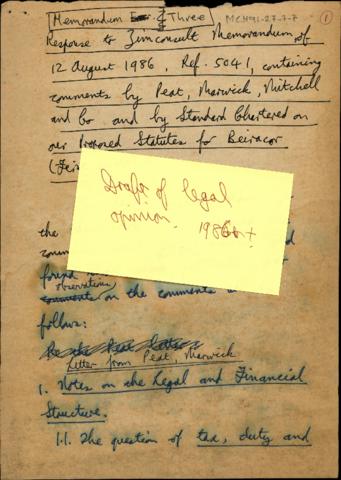 Memorandum Three MCH91-27-7-7 1
Response to Zimconsult Memorandum of
12 August 1986, Ref. 5041, containing
comments by Peat, Marwick, Mitchell
and Co and by Standard Chartered on
our Proposed Statutes for Beiracor
Draft of legal
opinion. 1986
the
found
observations
comments on the comments
follows:
Letter from Peat, Marwick
1. Notes on the Legal and Financial
Structure.
1.1. The question of tax, duty and